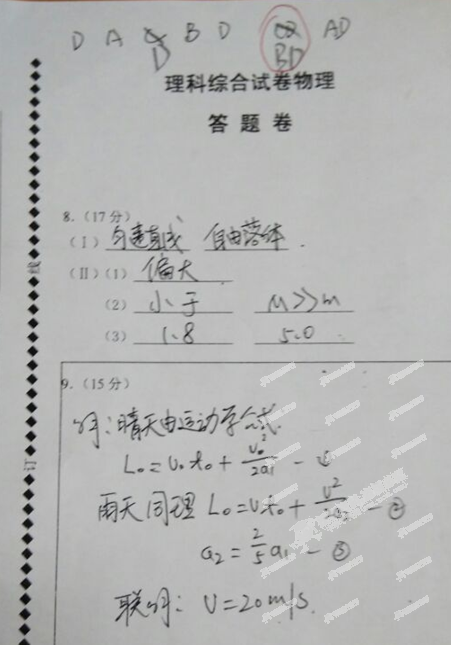 D A D B D BD AD
理科综合试卷物理
答题卷
8.(17分)
(I) 匀速直线 自由落体.
(II)(1) 偏大
(2) 小于 M>>m
(3) 1.8 5.0
9.(15分)
解:晴天由运动学公式.
L₀=v₀t₀+v₀²/2a₁ —①
雨天同理 L₀=vt₀+v²/2a₂ —②
a₂=2/5a₁ —③
联解: v=20m/s.
线
订